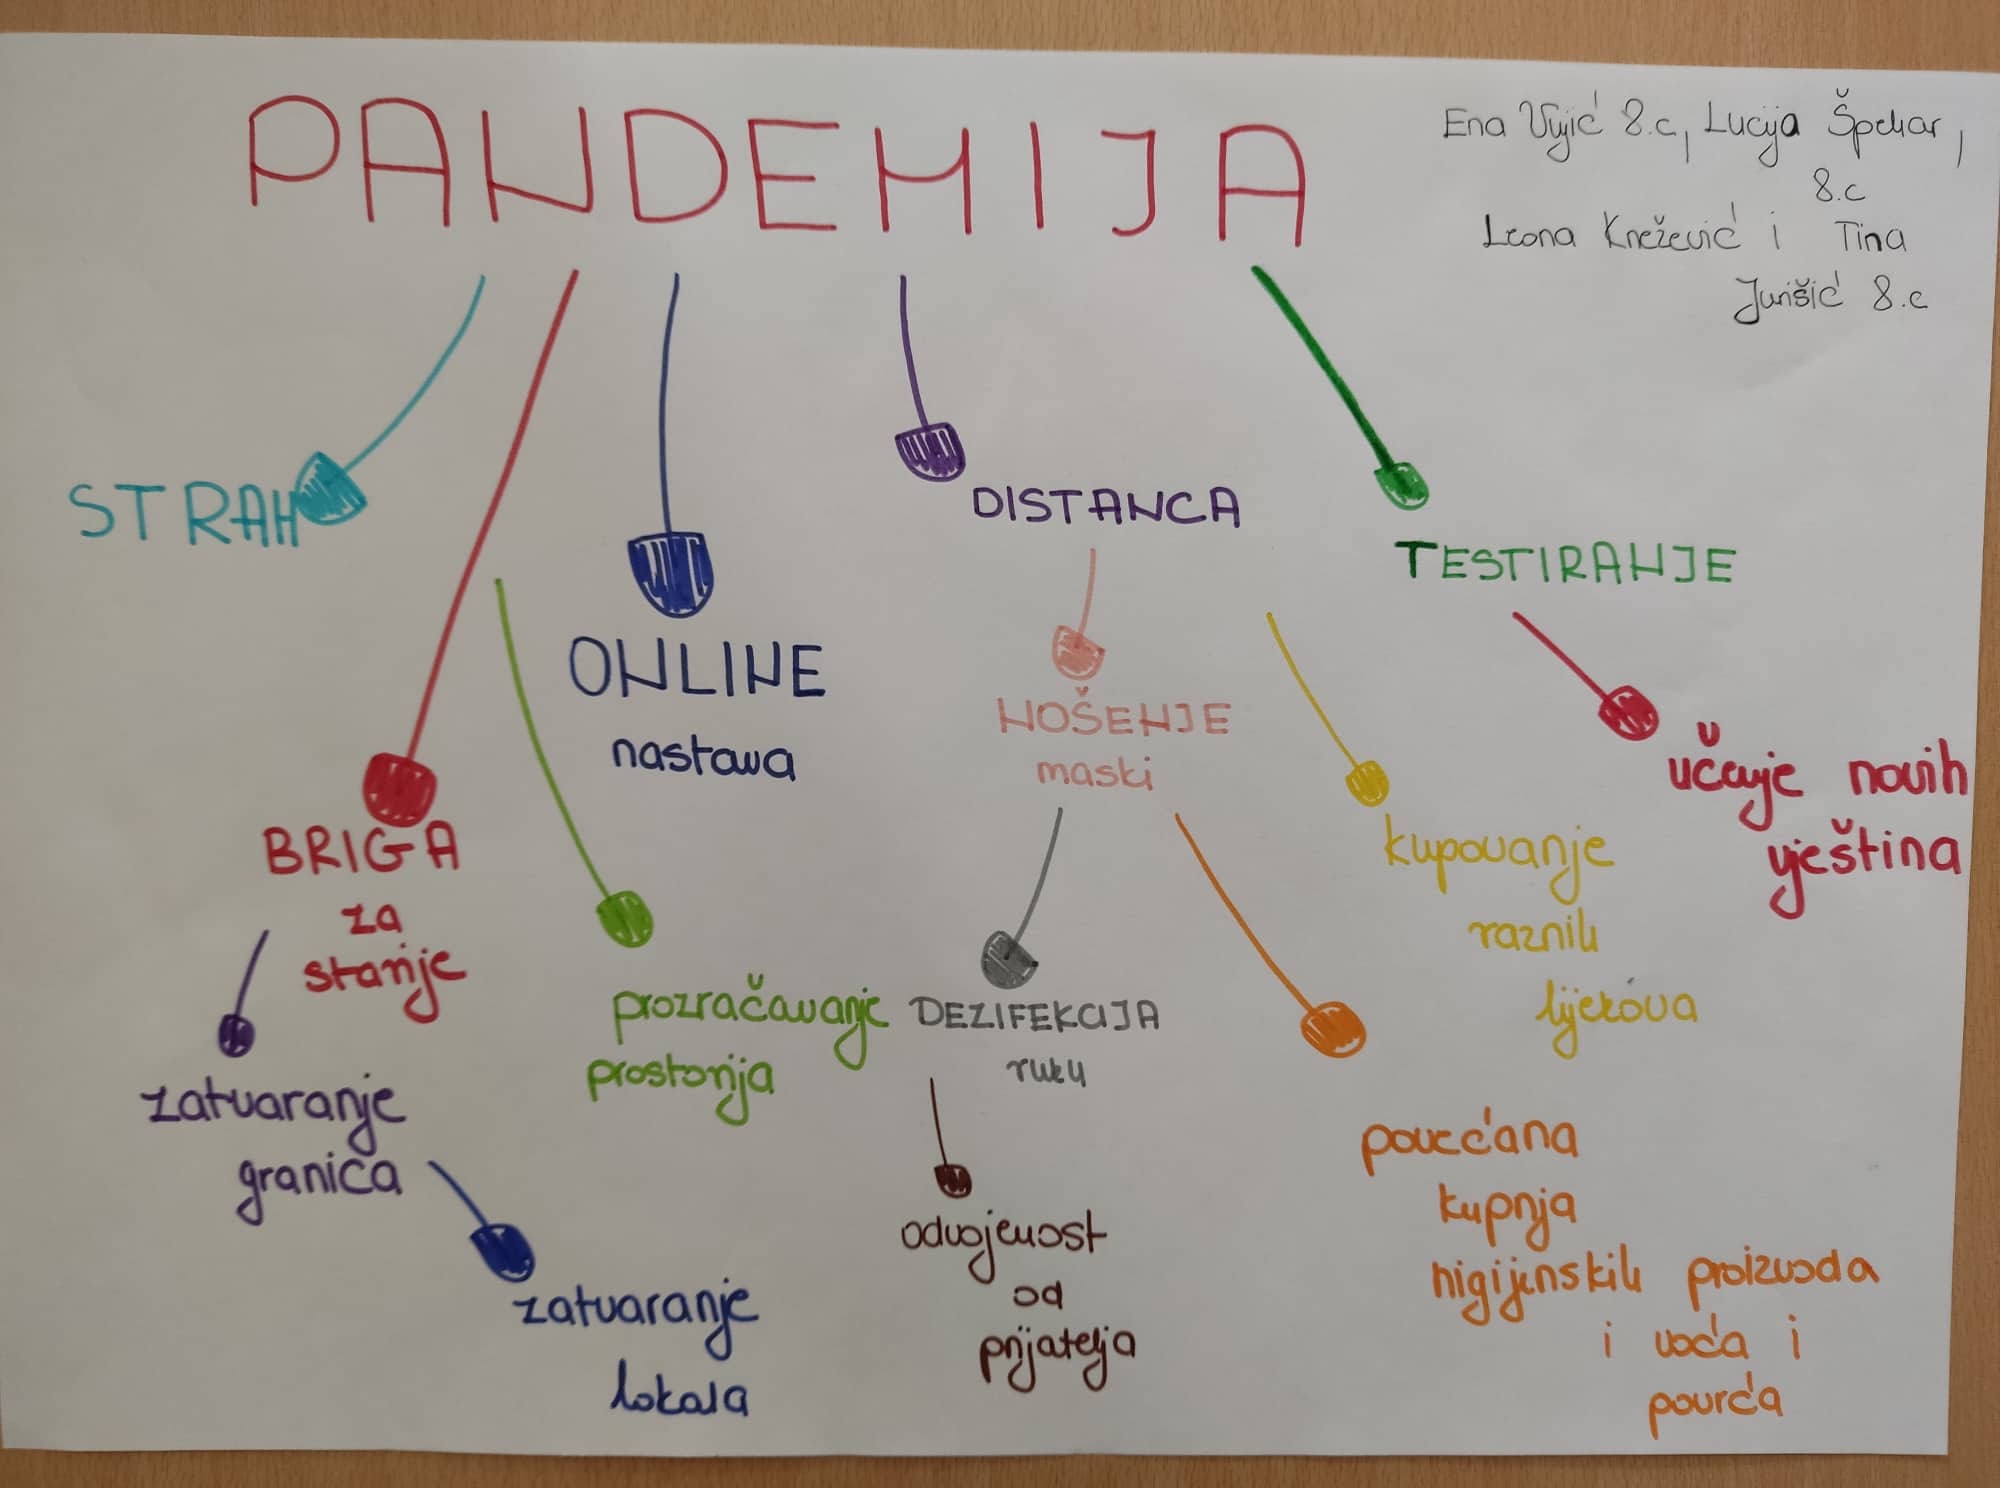 PANDEMIJA
Ena Vujić 8.c, Lucija Špehar,
8.c
Leona Knežević i Tina
Jurišić 8.c
STRAH
DISTANCA
TESTIRANJE
ONLINE
nastava
NOŠENJE
maski
učenje novih
vještina
BRIGA
za
stanje
kupovanje
raznih
lijekova
prozračavanje
prostorija
DEZIFEKCIJA
ruku
zatvaranje
granica
povećana
kupnja
higijenskih proizvoda
i voća i
povrća
odvojenost
od
prijatelja
zatvaranje
lokala